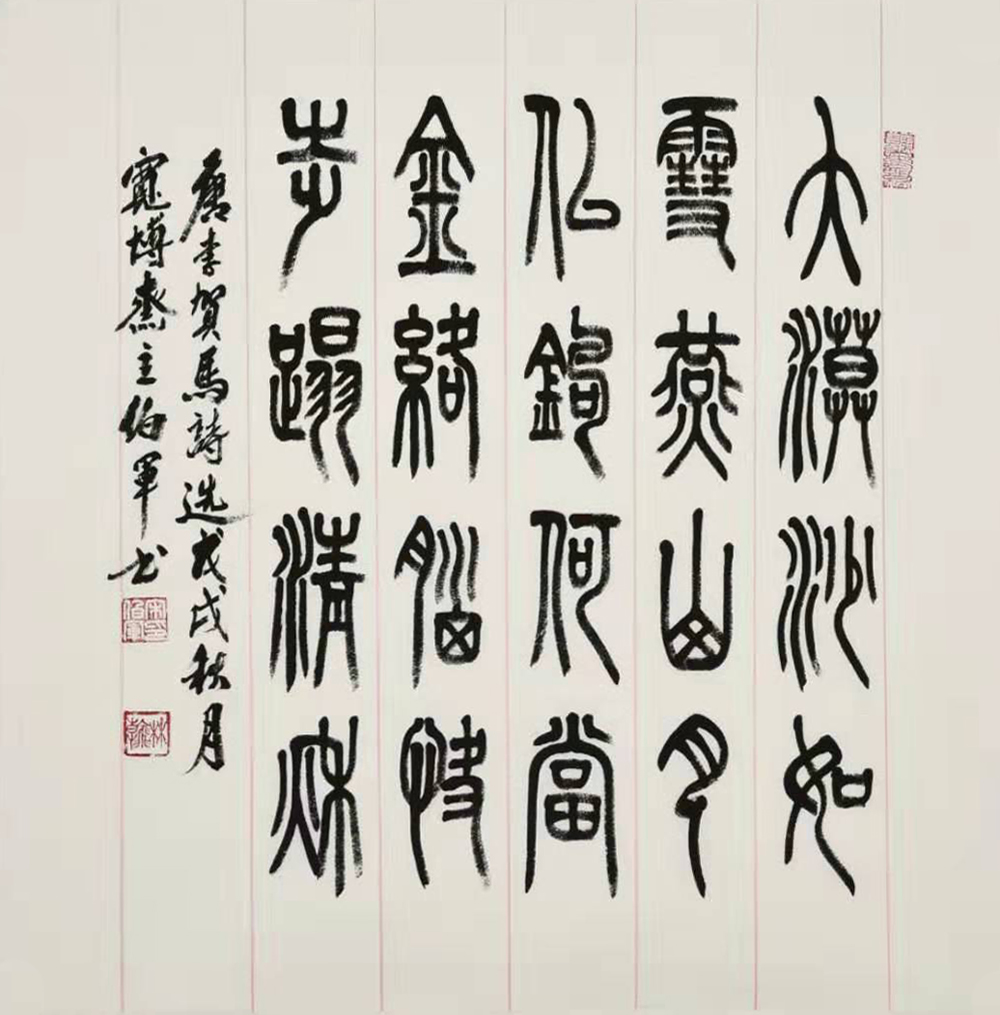 大漠沙如
雪燕山月
似鉤何當
金絡腦快
走蹋清秋
唐李賀馬詩选戊戌秋月
寬博齋主伯軍书